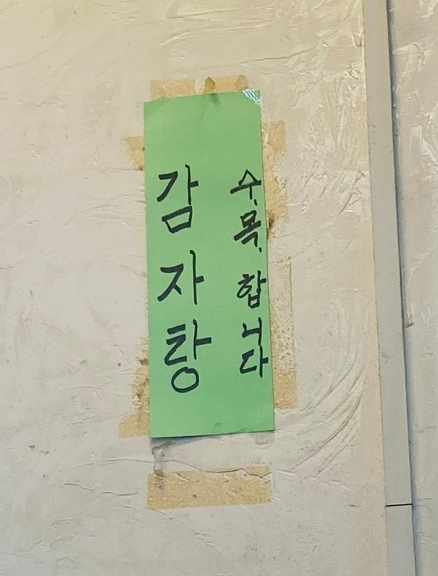 감자탕
수.목. 합니다